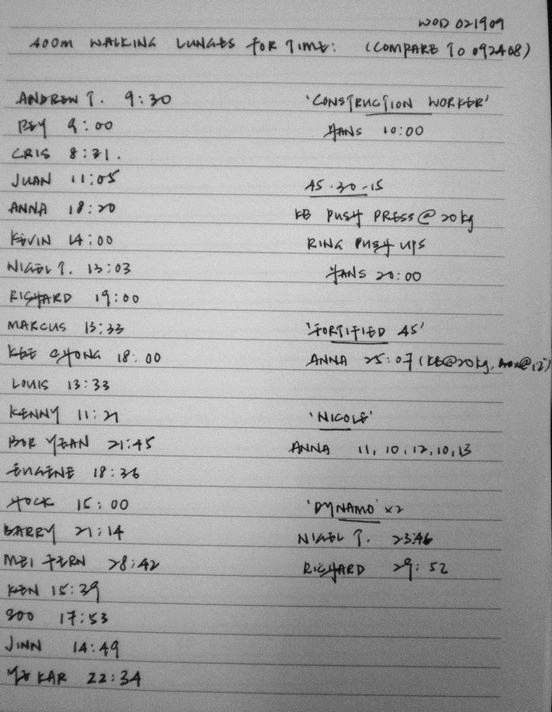 WOD 021909
400m WALKING LUNGES FOR TIME: (COMPARE TO 092408)
ANDREW T. 9:30
BEY 9:00
CRIS 8:31.
JUAN 11:05
ANNA 18:20
KEVIN 14:00
NIGEL T. 13:03
RICHARD 19:00
MARCUS 13:33
KEE CHONG 18:00
LOUIS 13:33
KENNY 11:21
BOR YEAN 21:45
EUGENE 18:36
HOCK 15:00
BARRY 21:14
MEI FERN 28:42
KEN 15:39
SOO 17:53
JINN 14:49
YE KAR 22:34
'CONSTRUCTION WORKER'
HANS 10:00
45-30-15
KB PUSH PRESS @ 20kg
RING PUSH UPS
HANS 20:00
'FORTIFIED 45'
ANNA 25:07 (KB@20kg, box@12")
'NICOLE'
ANNA 11, 10, 12, 10, 13
'DYNAMO' x2
NIGEL T. 23:46
RICHARD 29:52